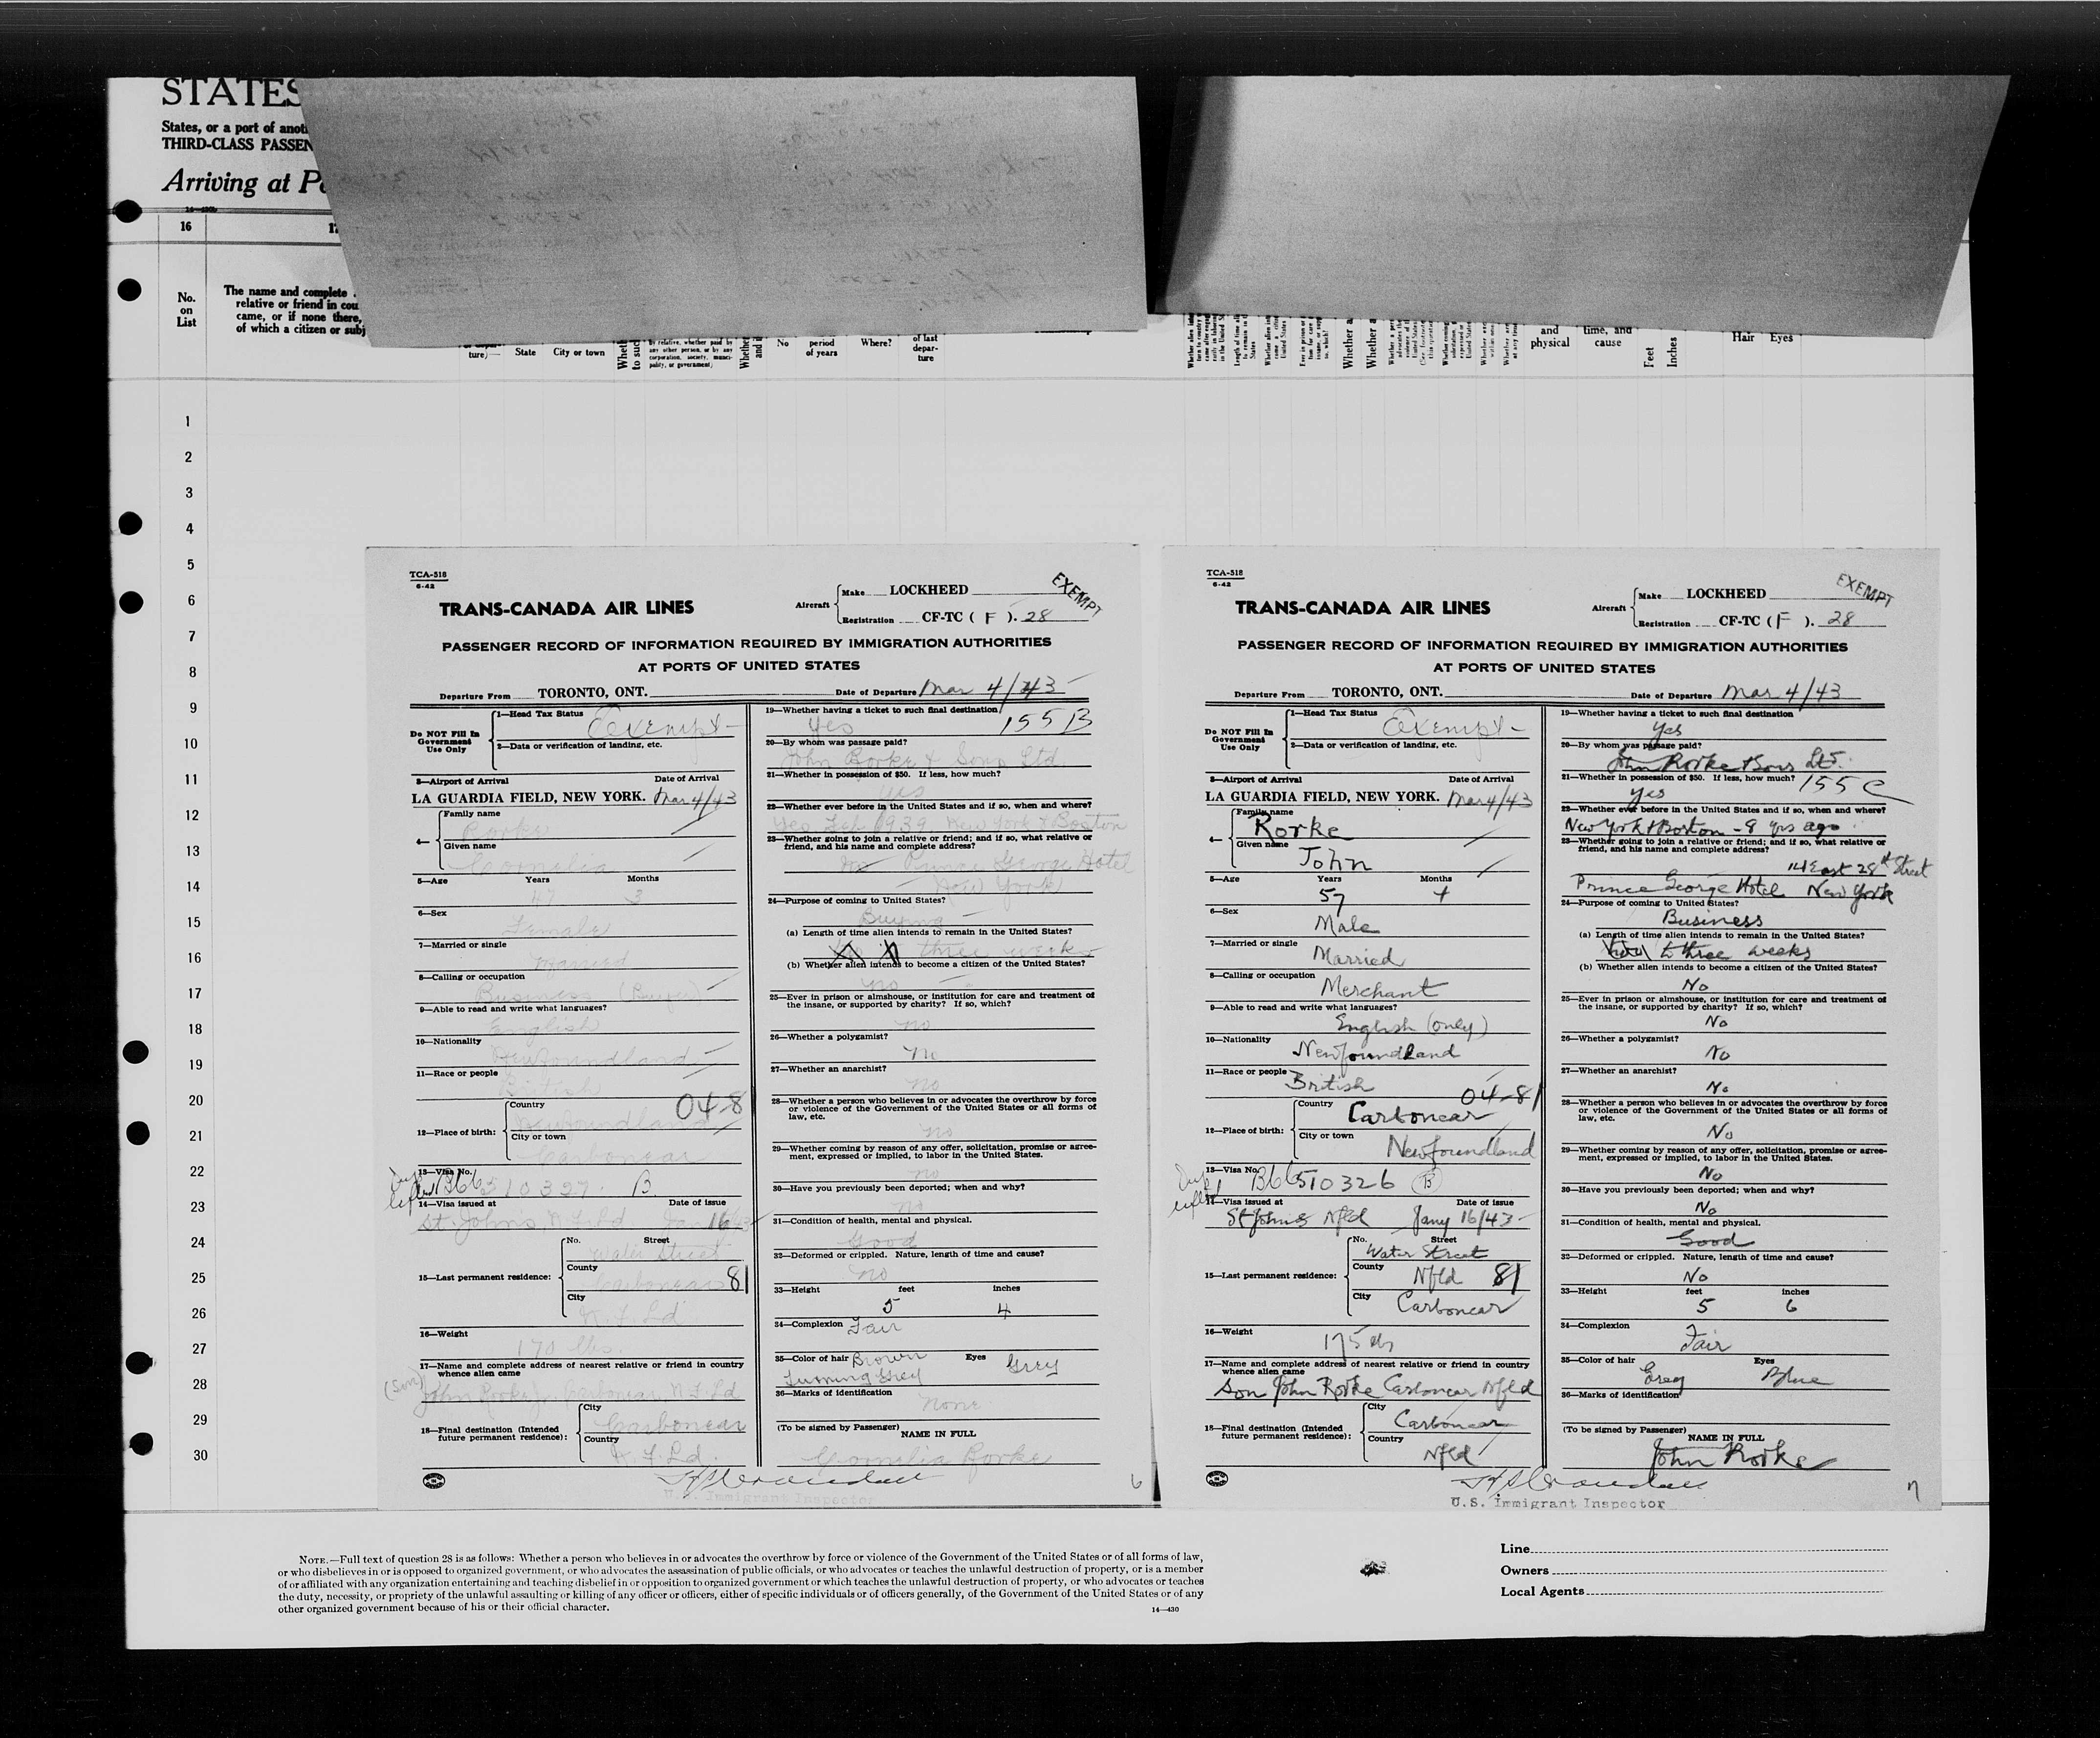 STATES
States, or a port of anot
THIRD-CLASS PASSEN
Arriving at Po
16
No.
on
List
The name and complete
relative or friend in cou
came, or if none there,
of which a citizen or subj
ture)—
State
City or town
by relative, whether paid by
any other person, or by any
corporation, society, munic-
ipality, or government)
No
period
of years
Where?
of last
depar-
ture
and
physical
time, and
cause
Feet
Inches
Hair
Eyes
1
2
3
4
5
6
7
8
9
10
11
12
13
14
15
16
17
18
19
20
21
22
23
24
25
26
27
28
29
30
TCA-518
6-42
TRANS-CANADA AIR LINES
Aircraft
Make LOCKHEED
Registration CF-TC ( F ). 28
EXEMPT
PASSENGER RECORD OF INFORMATION REQUIRED BY IMMIGRATION AUTHORITIES
AT PORTS OF UNITED STATES
Departure From TORONTO, ONT. Date of Departure Mar 4/43
Do NOT Fill In
Government
Use Only
1—Head Tax Status Exempt
2—Data or verification of landing, etc.
3—Airport of Arrival Date of Arrival
LA GUARDIA FIELD, NEW YORK. Mar 4/43
4— Family name
Rorke
Given name
Cornelia
5—Age Years Months
47 3
6—Sex
Female
7—Married or single
Married
8—Calling or occupation
Business (Buyer)
9—Able to read and write what languages?
English
10—Nationality
Newfoundland
11—Race or people
British
04-81
12—Place of birth: Country
Newfoundland
City or town
Carbonear
13—Visa No.
B66510327 B
14—Visa issued at Date of issue
St. John's, N.F.Ld Jan 16/43
15—Last permanent residence: No. Street
Water Street
County
Carbonear 81
City
N.F.Ld
16—Weight
170 lbs.
17—Name and complete address of nearest relative or friend in country
whence alien came
(Son) John Rorke Jr. Carbonear, N.F.Ld
18—Final destination (Intended
future permanent residence): City
Carbonear
Country
N.F.Ld.
19—Whether having a ticket to such final destination
Yes 155B
20—By whom was passage paid?
John Rorke & Sons Ltd.
21—Whether in possession of $50. If less, how much?
Yes
22—Whether ever before in the United States and if so, when and where?
Yes Feb 1939 New York & Boston
23—Whether going to join a relative or friend; and if so, what relative or
friend, and his name and complete address?
No Prince George Hotel
New York
24—Purpose of coming to United States?
Buying
(a) Length of time alien intends to remain in the United States?
three weeks
(b) Whether alien intends to become a citizen of the United States?
no
25—Ever in prison or almshouse, or institution for care and treatment of
the insane, or supported by charity? If so, which?
no
26—Whether a polygamist?
no
27—Whether an anarchist?
no
28—Whether a person who believes in or advocates the overthrow by force
or violence of the Government of the United States or all forms of
law, etc.
no
29—Whether coming by reason of any offer, solicitation, promise or agree-
ment, expressed or implied, to labor in the United States.
no
30—Have you previously been deported; when and why?
no
31—Condition of health, mental and physical.
Good
32—Deformed or crippled. Nature, length of time and cause?
no
33—Height feet inches
5 4
34—Complexion Fair
35—Color of hair Brown Eyes Grey
Turning Grey
36—Marks of identification
none
(To be signed by Passenger)
NAME IN FULL
Cornelia Rorke
U.S. Immigrant Inspector
6
TCA-518
6-42
TRANS-CANADA AIR LINES
Aircraft
Make LOCKHEED
Registration CF-TC ( F ). 28
EXEMPT
PASSENGER RECORD OF INFORMATION REQUIRED BY IMMIGRATION AUTHORITIES
AT PORTS OF UNITED STATES
Departure From TORONTO, ONT. Date of Departure Mar 4/43
Do NOT Fill In
Government
Use Only
1—Head Tax Status Exempt
2—Data or verification of landing, etc.
3—Airport of Arrival Date of Arrival
LA GUARDIA FIELD, NEW YORK. Mar 4/43
4— Family name
Rorke
Given name
John
5—Age Years Months
57 4
6—Sex
Male
7—Married or single
Married
8—Calling or occupation
Merchant
9—Able to read and write what languages?
English (only)
10—Nationality
Newfoundland
11—Race or people
British
04-81
12—Place of birth: Country
Carbonear
City or town
Newfoundland
13—Visa No.
B66510326 B
14—Visa issued at Date of issue
St Johns Nfld Jany 16/43
15—Last permanent residence: No. Street
Water Street
County
Nfld 81
City
Carbonear
16—Weight
175 lbs
17—Name and complete address of nearest relative or friend in country
whence alien came
Son John Rorke Carbonear Nfld
18—Final destination (Intended
future permanent residence): City
Carbonear
Country
Nfld
19—Whether having a ticket to such final destination
Yes
20—By whom was passage paid?
John Rorke & Sons Ltd.
21—Whether in possession of $50. If less, how much?
Yes 155C
22—Whether ever before in the United States and if so, when and where?
New York & Boston - 8 yrs ago
23—Whether going to join a relative or friend; and if so, what relative or
friend, and his name and complete address?
14 East 28th Street
Prince George Hotel New York
24—Purpose of coming to United States?
Business
(a) Length of time alien intends to remain in the United States?
to three weeks
(b) Whether alien intends to become a citizen of the United States?
No
25—Ever in prison or almshouse, or institution for care and treatment of
the insane, or supported by charity? If so, which?
No
26—Whether a polygamist?
No
27—Whether an anarchist?
No
28—Whether a person who believes in or advocates the overthrow by force
or violence of the Government of the United States or all forms of
law, etc.
No
29—Whether coming by reason of any offer, solicitation, promise or agree-
ment, expressed or implied, to labor in the United States.
No
30—Have you previously been deported; when and why?
No
31—Condition of health, mental and physical.
Good
32—Deformed or crippled. Nature, length of time and cause?
No
33—Height feet inches
5 6
34—Complexion
Fair
35—Color of hair Eyes
Grey Blue
36—Marks of identification
(To be signed by Passenger)
NAME IN FULL
John Rorke
U.S. Immigrant Inspector
7
NOTE.—Full text of question 28 is as follows: Whether a person who believes in or advocates the overthrow by force or violence of the Government of the United States or of all forms of law,
or who disbelieves in or is opposed to organized government, or who advocates the assassination of public officials, or who advocates or teaches the unlawful destruction of property, or is a member
of or affiliated with any organization entertaining and teaching disbelief in or opposition to organized government or which teaches the unlawful destruction of property, or who advocates or teaches
the duty, necessity, or propriety of the unlawful assaulting or killing of any officer or officers, either of specific individuals or of officers generally, of the Government of the United States or of any
other organized government because of his or their official character.
14—430
Line
Owners
Local Agents